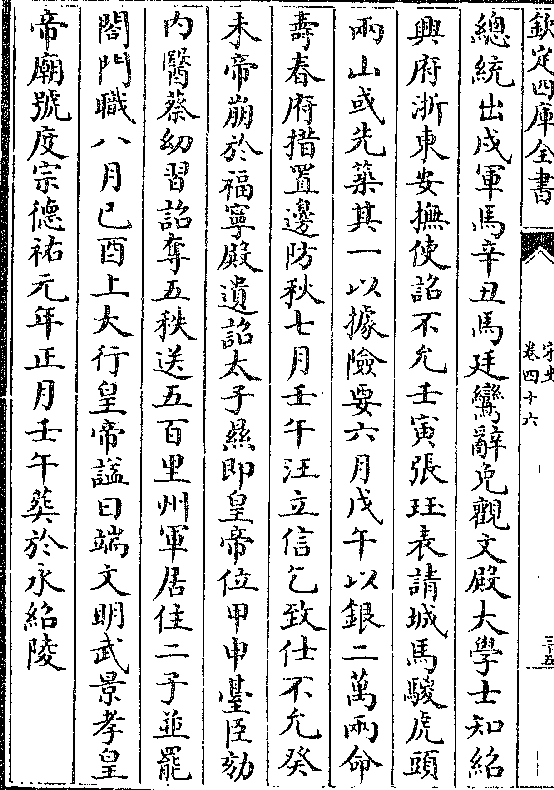 欽定四庫全書
宋史
卷四十六
三五
總統出戍軍馬辛丑馬廷鸞辭免觀文殿大學士知紹
興府浙東安撫使詔不允壬寅張珏表請城馬騣虎頭
兩山或先築其一以據險要六月戊午以銀二萬兩命
壽春府措置邊防秋七月壬午汪立信乞致仕不允癸
未帝崩於福寧殿遺詔太子㬎即皇帝位甲申臺臣劾
内醫蔡幼習詔奪五秩送五百里州軍居住二子並罷
閤門職八月己酉上大行皇帝諡曰端文明武景孝皇
帝廟號度宗德祐元年正月壬午葬於永紹陵